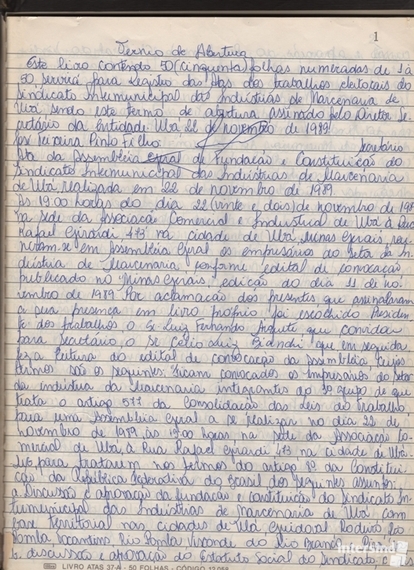 1
Termo de Abertura
Este livro contendo 50 (cinquenta) folhas numeradas de 1 a
50 servirá para registro das Atas dos trabalhos eleitorais do
Sindicato Intermunicipal das Indústrias de Marcenaria de
Ubá, sendo este termo de abertura assinado pelo Diretor Se-
cretário da entidade Ubá 22 de novembro de 1989
José Teixeira Pinto Filho Secretário
Ata da Assembleia Geral de Fundação e Constituição do
Sindicato Intermunicipal das Indústrias de Marcenaria
de Ubá realizada em 22 de novembro de 1989.
Às 19:00 horas do dia 22 (vinte e dois) de novembro de 198
na sede da Associação Comercial e Industrial de Ubá à Rua
Rafael Girardi 473 na cidade de Ubá, Minas Gerais, reu
niram-se em Assembléia Geral os empresários do Setor da In
dústria de Marcenaria, conforme edital de convocação
publicado no "Minas Gerais", edição do dia 11 de no-
vembro de 1989 Por aclamação dos presentes, que assinalaram
a sua presença em livro próprio, foi escolhido Presiden
te dos trabalhos o Sr Luiz Fernando que convidou
para Secretário, o Sr Célio Luiz que em seguida
fez a leitura do edital de convocação da assembléia, cujos
termos são os seguintes: Ficam convocados os Empresários do Setor
da Indústria da Marcenaria integrantes do 3º grupo de que
trata o artigo 577 da Consolidação das Leis do Trabalho
para uma Assembléia Geral a se realizar no dia 22 de
novembro de 1989, às 19:00 horas, na sede da Associação Co-
mercial de Ubá, à Rua Rafael Girardi 473 na cidade de Ubá-
para tratarem nos termos do artigo 8º da Constitui-
ção da República Federativa do Brasil dos seguintes assuntos:
a Discussão e aprovação da fundação e constituição do Sindicato In
termunicipal das Indústrias de Marcenaria de Ubá com
base Territorial nas cidades de Ubá, Guidoval Rodeiro São
Tocantins, Rio Pomba, Visconde do Rio Branco,
b. discussão e aprovação do Estatuto Social do Sindicato
LIVRO ATAS 37-A - 50 FOLHAS - CÓDIGO